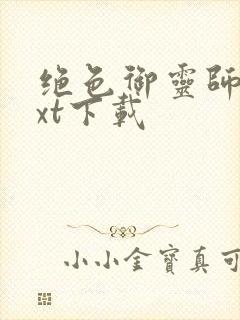 绝色御靈師
xt下載
小小金寶真可